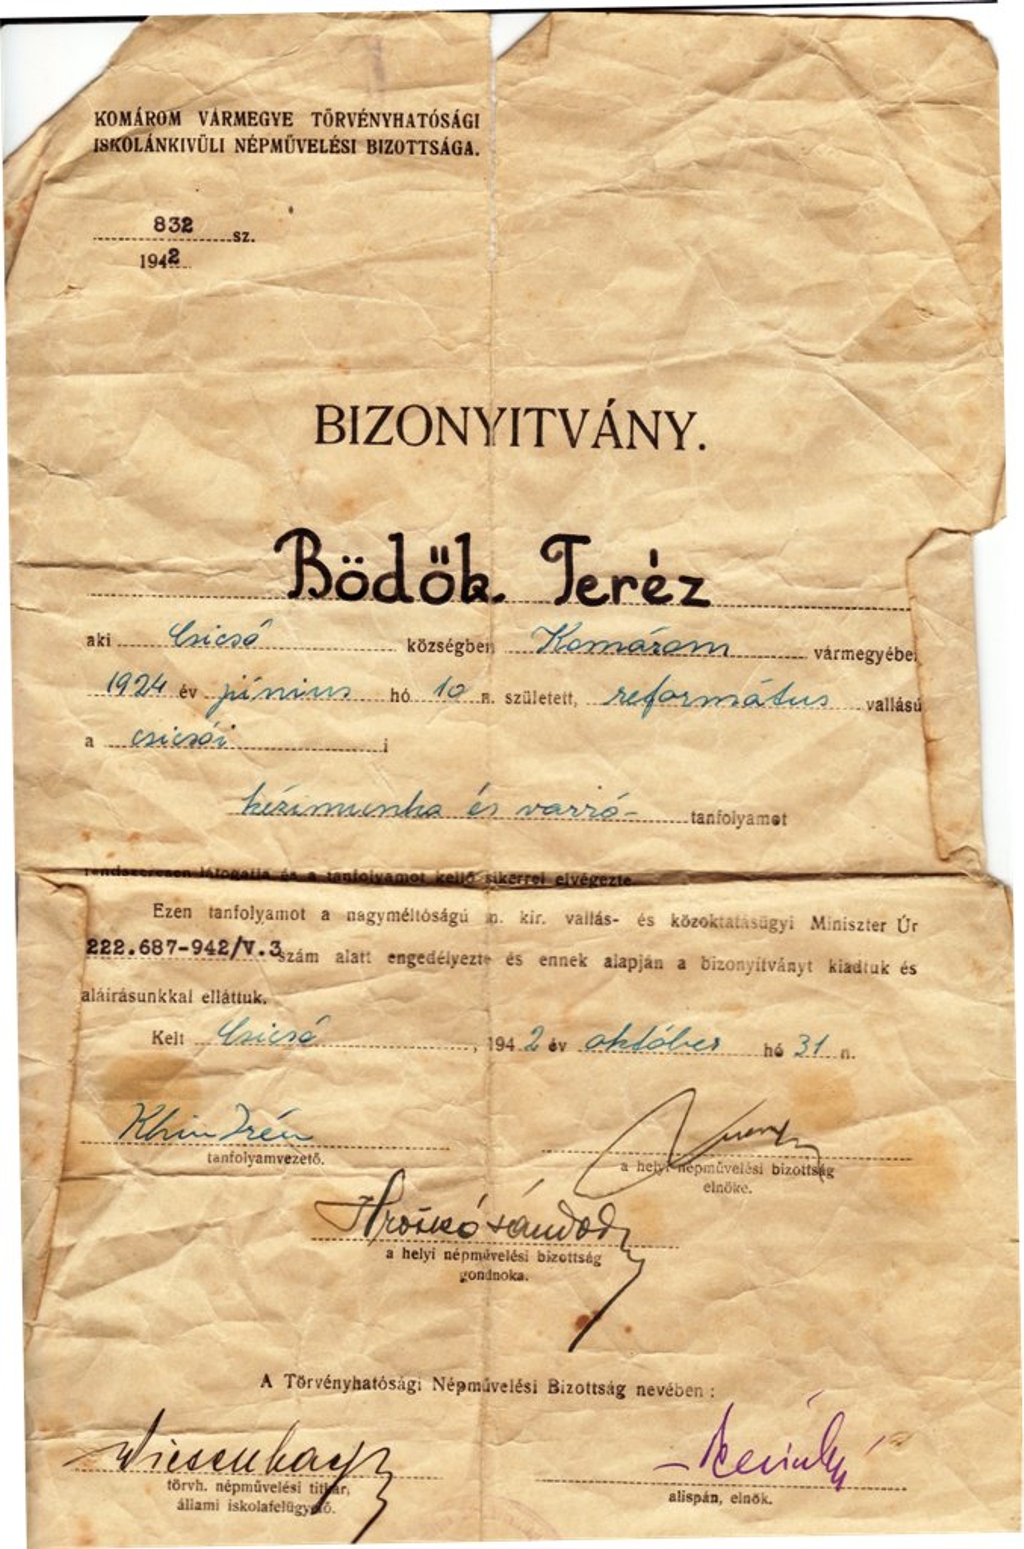 KOMÁROM VÁRMEGYE TÖRVÉNYHATÓSÁGI
ISKOLÁNKIVÜLI NÉPMŰVELÉSI BIZOTTSÁGA.
832 sz.
1942
BIZONYITVÁNY.
Bödők Teréz
aki Csicsó községben Komárom vármegyében
1924 év június hó 10 n. született, református vallású
a csicsói i
kézimunka és varró- tanfolyamot
rendszeresen látogatta és a tanfolyamot kellő sikerrel elvégezte.
Ezen tanfolyamot a nagyméltóságú m. kir. vallás- és közoktatásügyi Miniszter Úr
222.687-942/V.3 szám alatt engedélyezte és ennek alapján a bizonyítványt kiadtuk és
aláírásunkkal elláttuk.
Kelt Csicsó, 1942 év október hó 31 n.
Khin Irén
tanfolyamvezető.
a helyi népművelési bizottság
elnöke.
Hroskó Sándor
a helyi népművelési bizottság
gondnoka.
A Törvényhatósági Népművelési Bizottság nevében :
törvh. népművelési titkár,
állami iskolafelügyelő.
alispán, elnök.